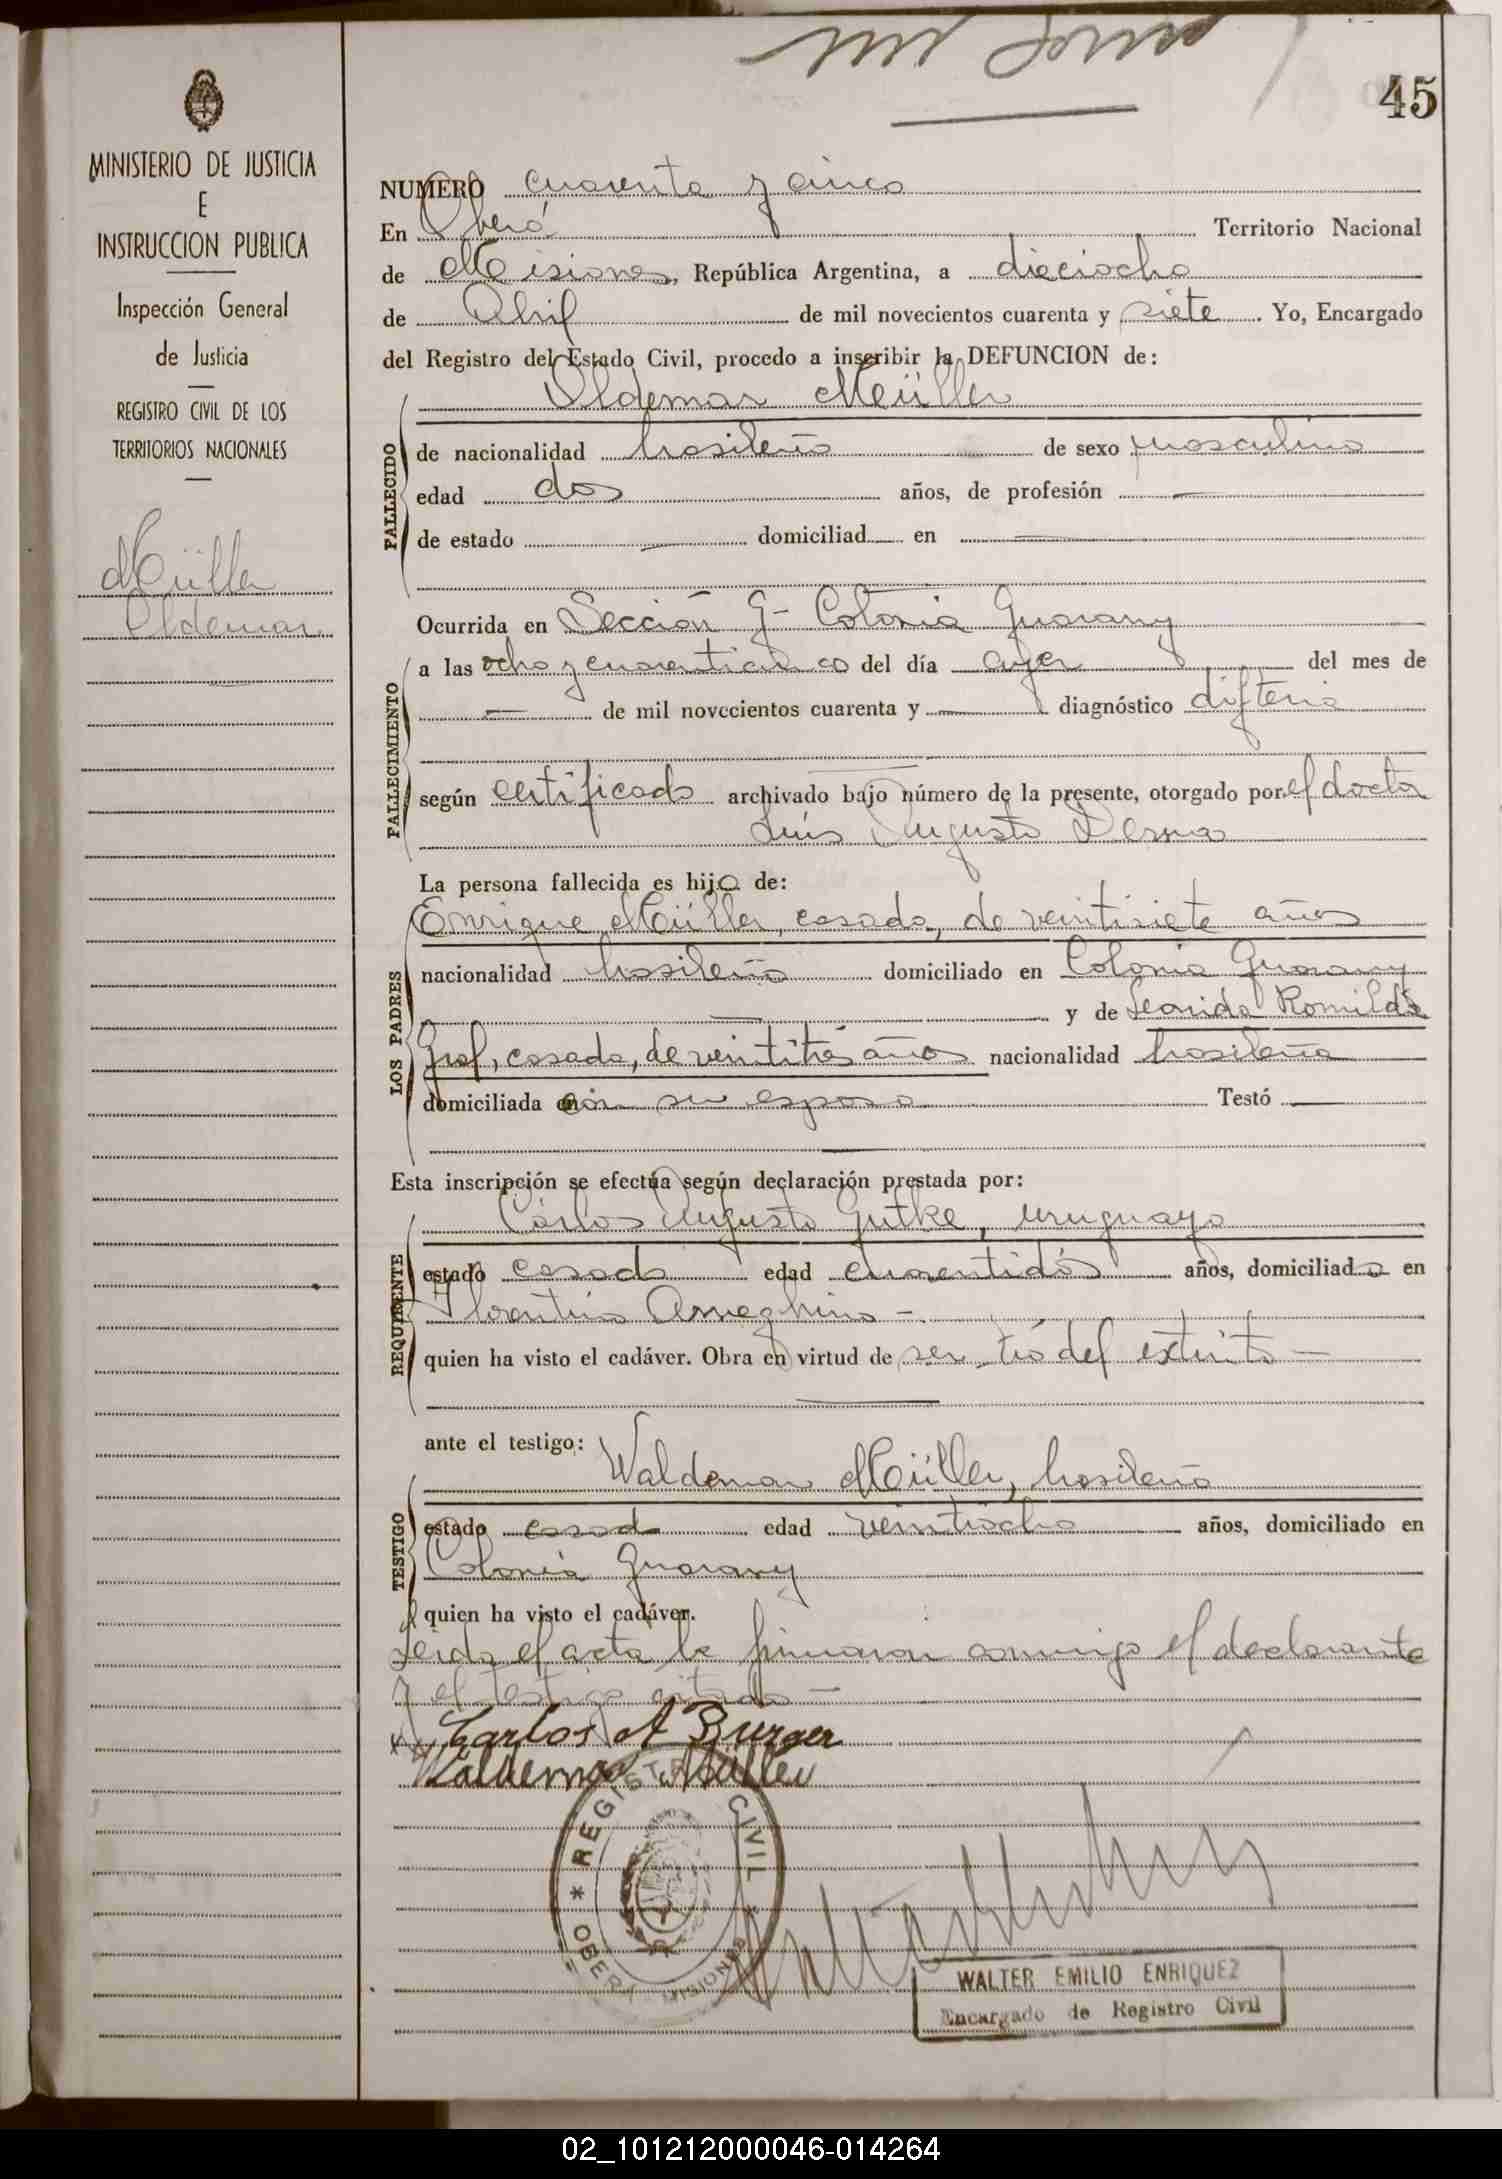 45
MINISTERIO DE JUSTICIA
E
INSTRUCCION PUBLICA
Inspección General
de Justicia
REGISTRO CIVIL DE LOS
TERRITORIOS NACIONALES
Müller
Oldemar
NUMERO cuarenta y cinco
En Oberá Territorio Nacional
de Misiones, República Argentina, a dieciocho
de Abril de mil novecientos cuarenta y siete. Yo, Encargado
del Registro del Estado Civil, procedo a inscribir la DEFUNCION de:
Oldemar Müller
FALLECIDO
de nacionalidad brasileño de sexo masculino
edad dos años, de profesión —
de estado — domiciliad en —
Ocurrida en Sección G- Colonia Guarany
FALLECIMIENTO
a las ocho y cuarenticinco del día ayer del mes de
— de mil novecientos cuarenta y — diagnóstico difteria
según certificado archivado bajo número de la presente, otorgado por el doctor
Luis Augusto
La persona fallecida es hijo de:
LOS PADRES
Enrique Müller, casado, de veintisiete años
nacionalidad brasileño domiciliado en Colonia Guarany
— y de Leonida Romilda
Graf, casada, de veintitrés años nacionalidad brasileña
domiciliada con su esposo Testó —
Esta inscripción se efectúa según declaración prestada por:
REQUIRENTE
Carlos Augusto Gutke, uruguayo
estado casado edad cuarentidós años, domiciliado en
Florentino Ameghino -
quien ha visto el cadáver. Obra en virtud de ser tío del extinto —
ante el testigo:
TESTIGO
Waldemar Müller, brasileño
estado casado edad veintiocho años, domiciliado en
Colonia Guarany
quien ha visto el cadáver.
Leída el acta la firmaron conmigo el declarante
y el testigo citado —
Carlos A Burger
Waldemar Müller
REGISTRO CIVIL
OBERA - MISIONES
WALTER EMILIO ENRIQUEZ
Encargado de Registro Civil
02_101212000046-014264